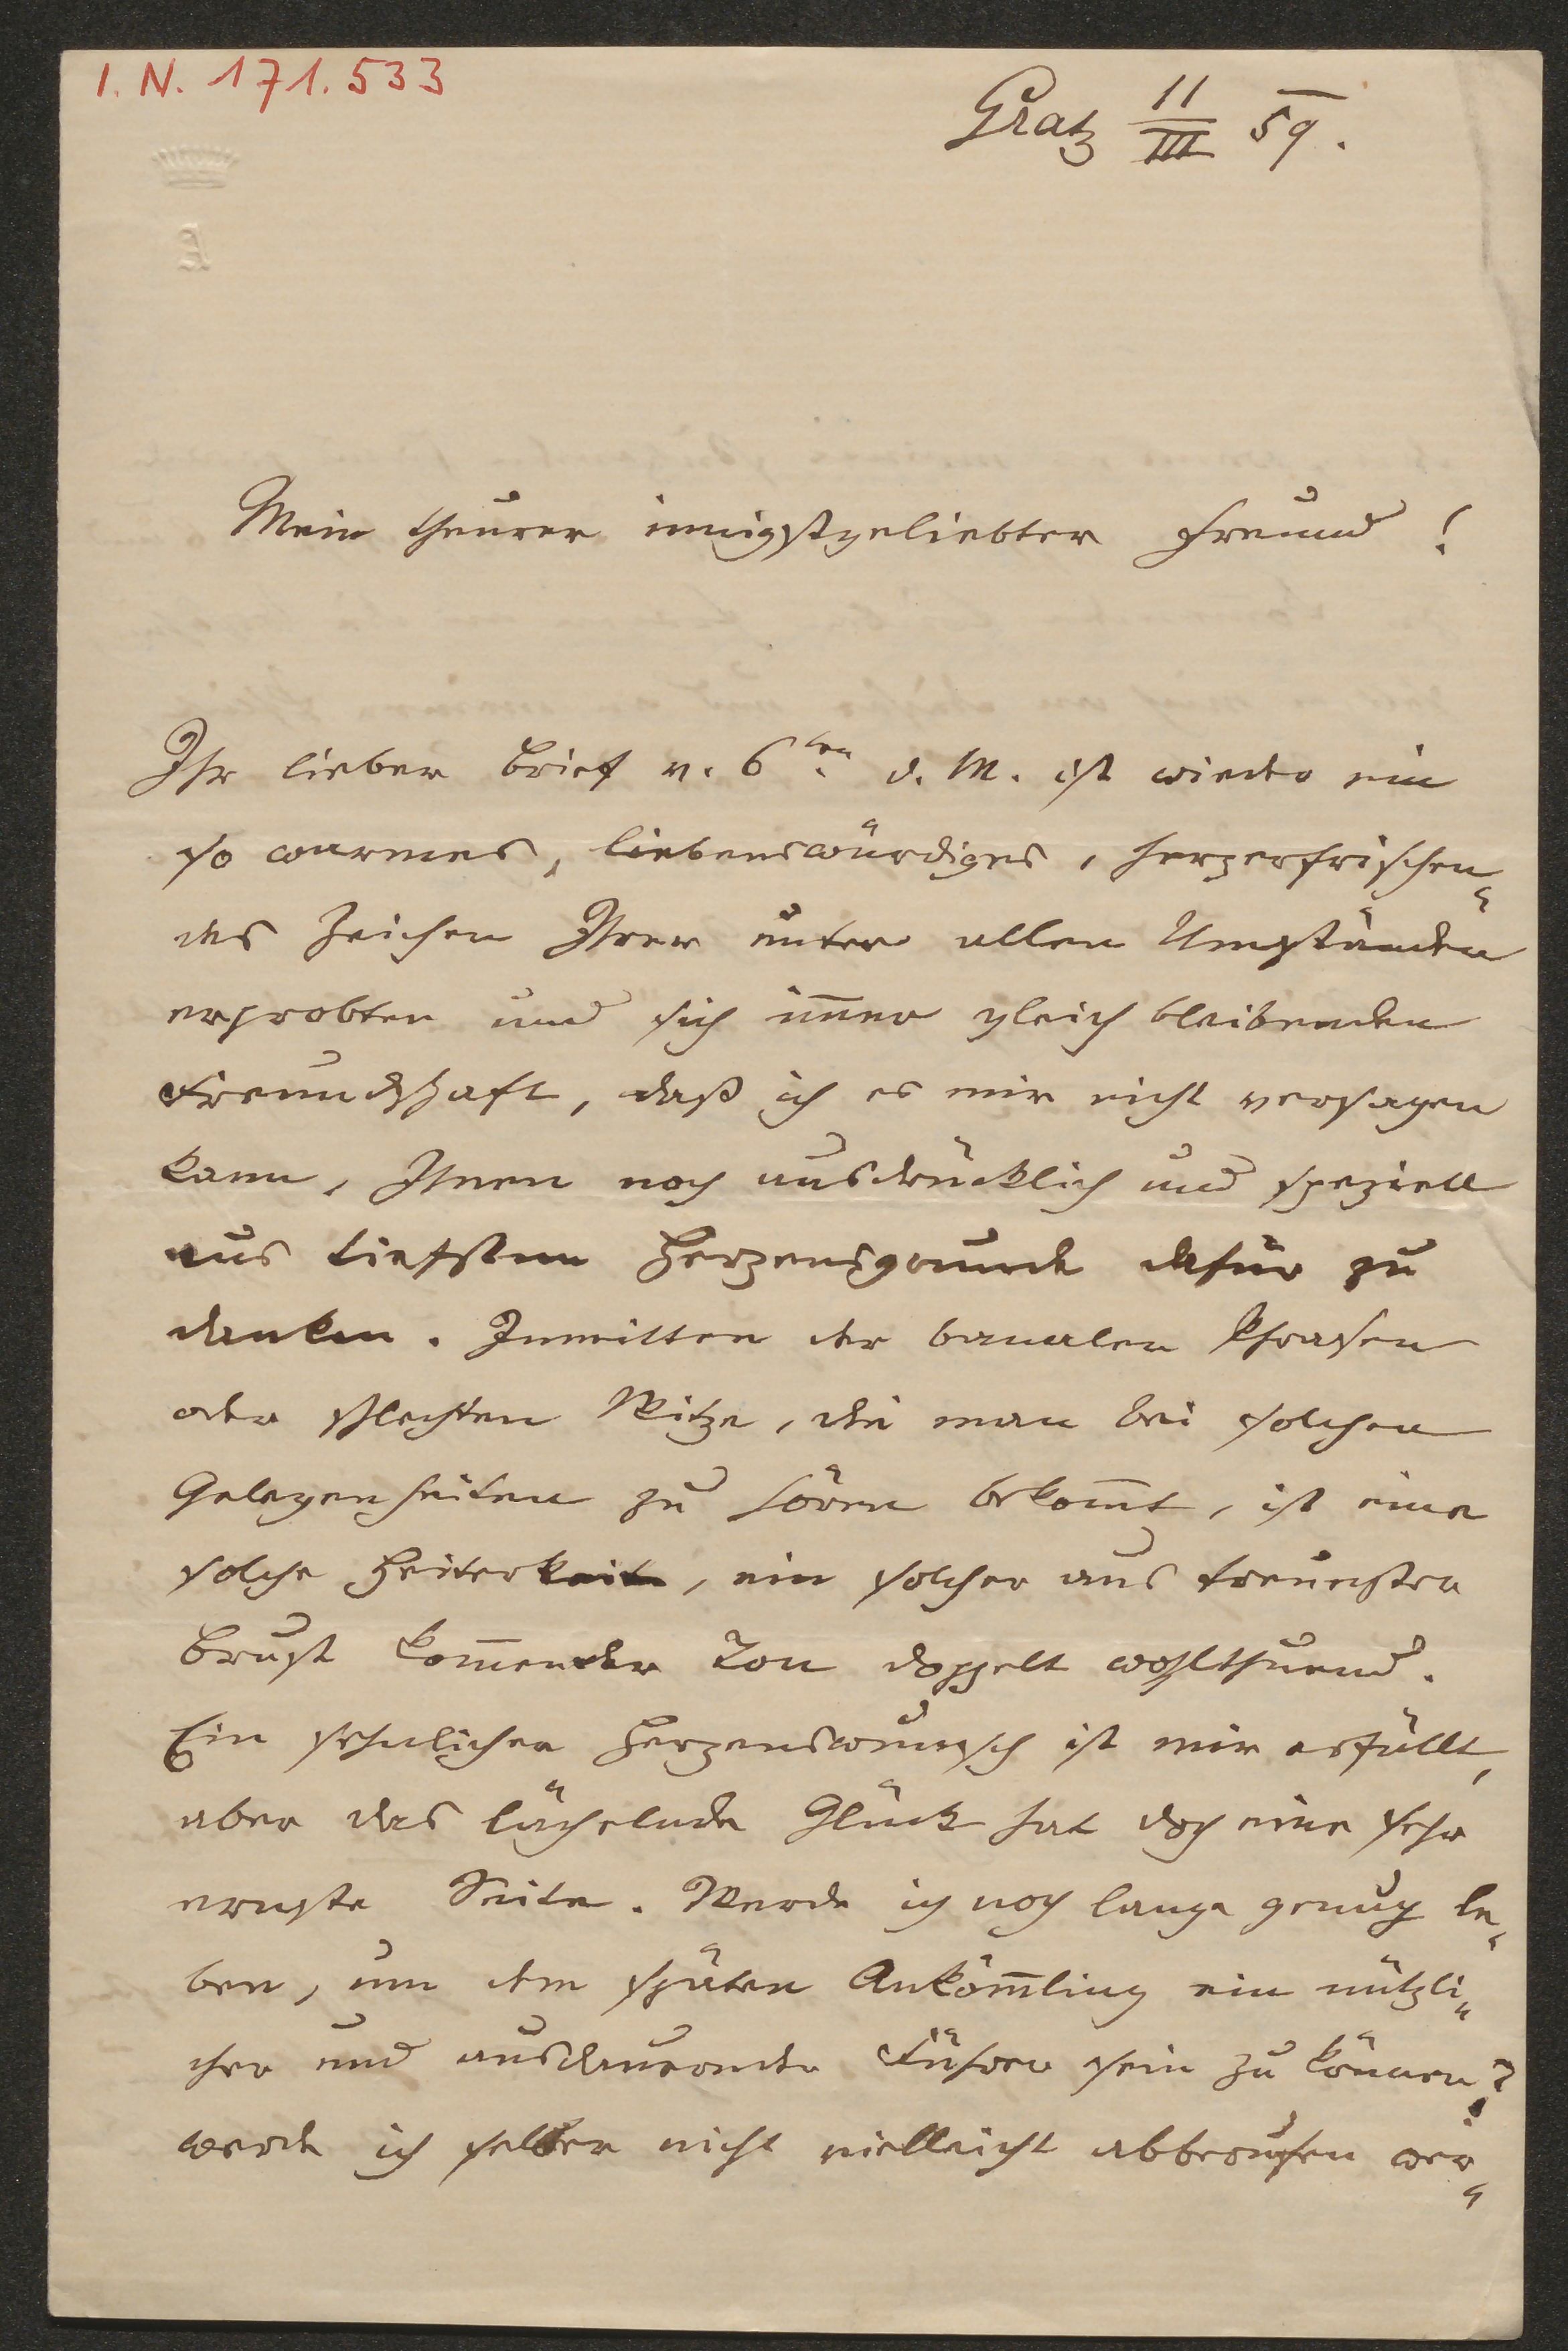 I. N. 171.533
Gratz 11/III 59.
Mein theurer innigstgeliebter Freund!
Ihr lieber Brief v. 6ten d. M. ist wieder ein
so warmes, liebenswürdiges, herzerfrischen-
des Zeichen Ihrer unter allen Umständen
erprobten und sich im̅er gleich bleibenden
Freundschaft, daß ich es mir nicht versagen
kann, Ihnen noch ausdrücklich und speziell
aus tiefstem Herzensgrunde dafür zu
danken. Inmitten der banalen Phrasen
oder schlechten Witze, die man bei solchen
Gelegenheiten zu hören bekom̅t, ist eine
solche Heiterkeit, ein solcher aus treuester
Brust kom̅ender Ton doppelt wohlthuend.
Ein sehnlicher Herzenswunsch ist mir erfüllt,
aber das lächelnde Glück hat doch eine sehr
ernste Seite. Werde ich noch lange genug le-
ben, um dem späten Anköm̅ling ein nützli-
cher und ausdauernder Führer sein zu können?
werde ich selber nicht vielleicht abberufen wer-